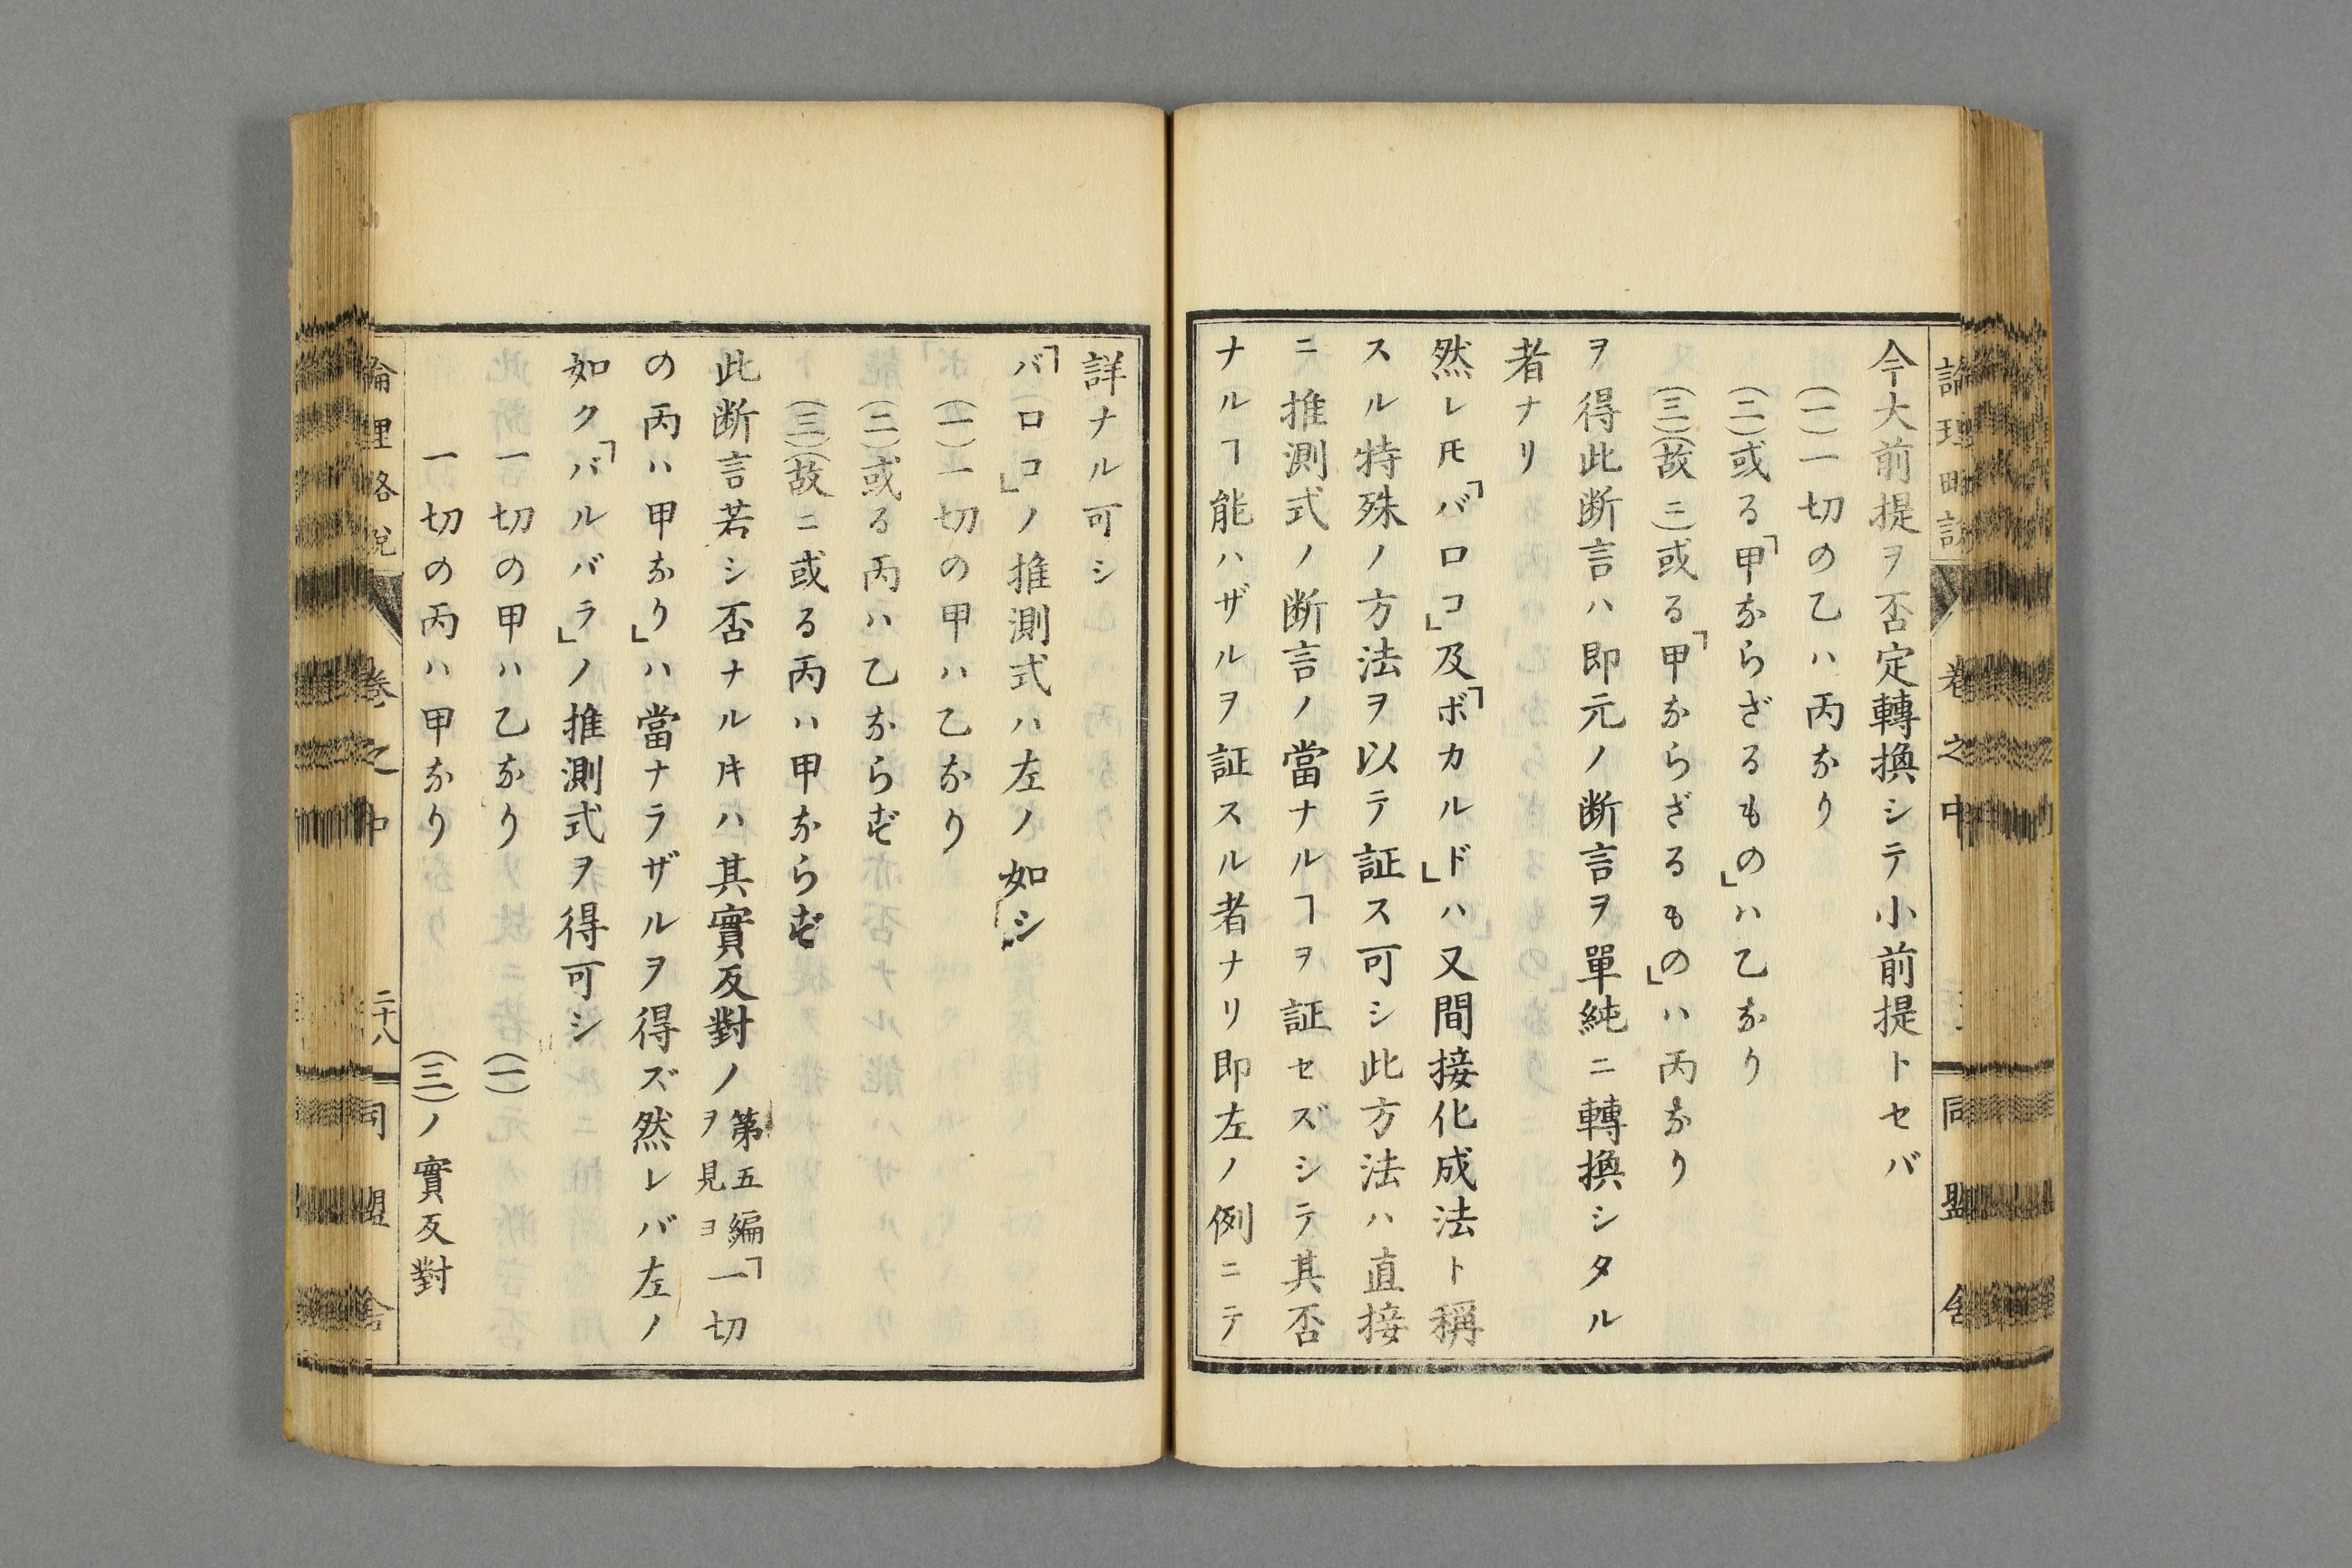 今大前提ヲ否定轉換シテ小前提トセバ
(一)一切の乙ハ丙なり
(二)或る「甲ならざるもの」ハ乙なり
(三)(故ニ)或る「甲ならざるもの」ハ丙なり
ヲ得此断言ハ即元ノ断言ヲ單純ニ轉換シタル
者ナリ
然レ𪜈「バロコ」及「ボカルド」ハ又間接化成法ト稱
スル特殊ノ方法ヲ以テ証ス可シ此方法ハ直接
ニ推測式ノ断言ノ當ナルヿヲ証セズシテ其否
ナルヿ能ハザルヲ証スル者ナリ即左ノ例ニテ
詳ナル可シ
「バロコ」ノ推測式ハ左ノ如シ
(一)一切の甲ハ乙なり
(二)或る丙ハ乙ならず
(三)(故ニ)或る丙ハ甲ならず
此断言若シ否ナルキハ其實反對ノ第五編ヲ見ヨ「一切
の丙ハ甲なり」ハ當ナラザルヲ得ズ然レバ左ノ
如ク「バルバラ」ノ推測式ヲ得可シ
一切の甲ハ乙なり (一)
一切の丙ハ甲なり (三)ノ實反對
論理略説 卷之中 二十八 同盟舎